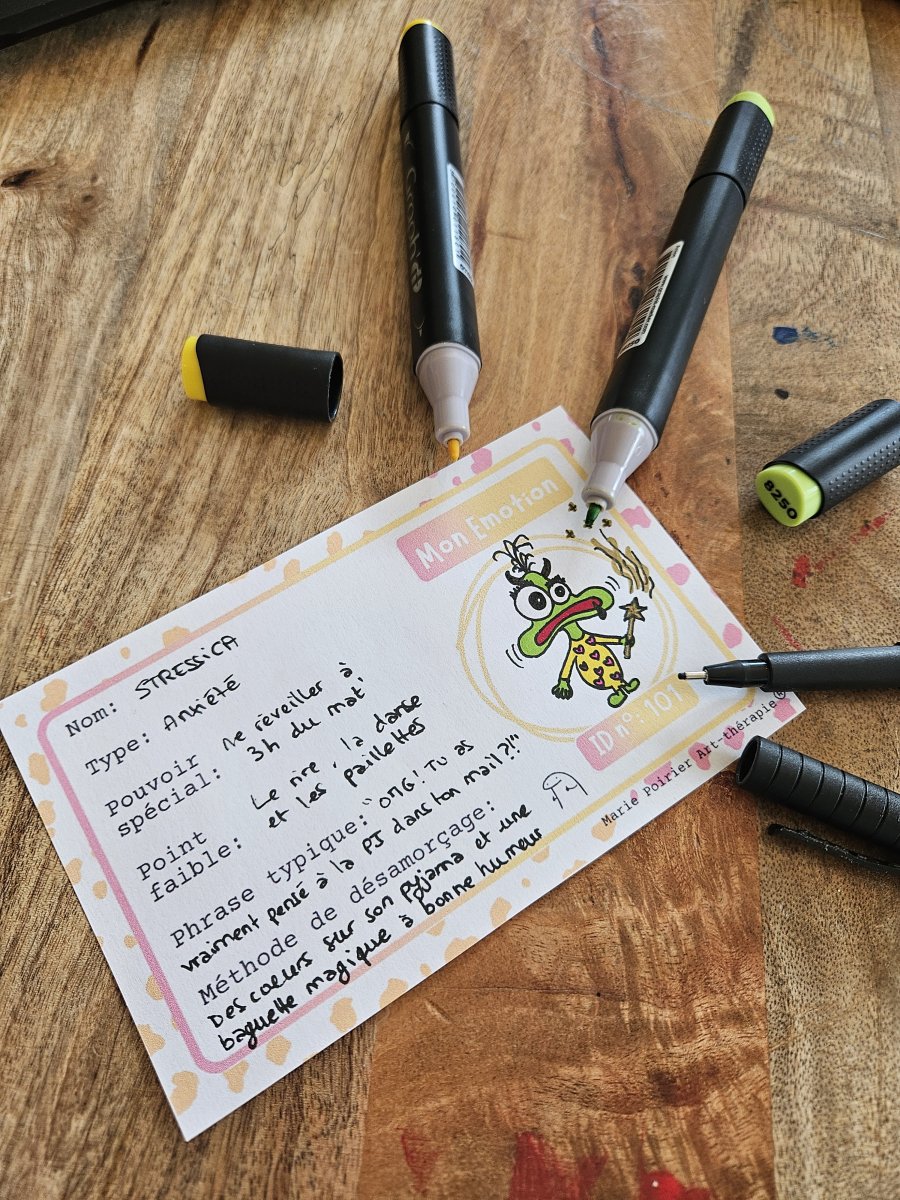 Graph'it
8250
Mon Emotion
Nom: STRESSICA
Type: Anxiété
Pouvoir spécial: Me réveiller à
3h du mat'
Point faible: Le rire, la danse
et les paillettes
Phrase typique: "OMG! Tu as
vraiment pensé à la PJ dans ton mail?!"
Méthode de désamorçage:
Des coeurs sur son pyjama et une
baguette magique à bonne humeur
ID n°: 101
Marie Poirier Art-thérapie©